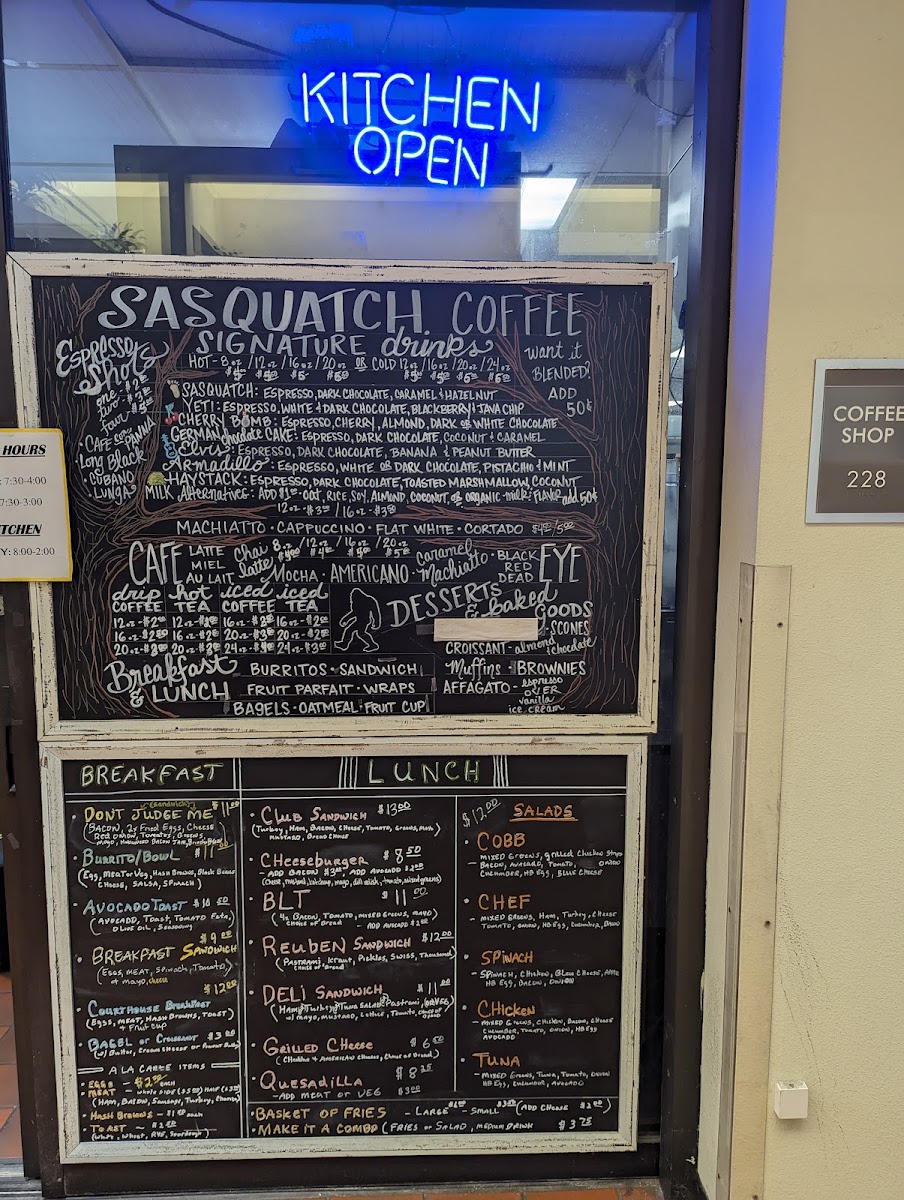 KITCHEN
OPEN
HOURS
: 7:30-4:00
7:30-3:00
Y: 8:00-2:00
COFFEE
SHOP
228
SASQUATCH COFFEE
SIGNATURE drinks
HOT - 8oz / 12oz / 16oz / 20oz OR COLD 12oz / 16oz / 20oz / 24oz
want it
BLENDED?
ADD
50¢
Espresso
Shots
one
two
four
• CAFE CON PANNA
• Long Black
• CUBANO
• LUNGA
SASQUATCH: ESPRESSO, DARK CHOCOLATE, CARAMEL & HAZELNUT
YETI: ESPRESSO, WHITE & DARK CHOCOLATE, BLACKBERRY & JAVA CHIP
CHERRY BOMB: ESPRESSO, CHERRY, ALMOND, DARK OR WHITE CHOCOLATE
GERMAN chocolate CAKE: ESPRESSO, DARK CHOCOLATE, COCONUT & CARAMEL
Elvis: ESPRESSO, DARK CHOCOLATE, BANANA & PEANUT BUTTER
Armadillo: ESPRESSO, WHITE OR DARK CHOCOLATE, PISTACHIO & MINT
HAYSTACK: ESPRESSO, DARK CHOCOLATE, TOASTED MARSHMALLOW, COCONUT
MILK Alternatives: ADD $1.00 OAT, RICE, SOY, ALMOND, COCONUT, OR ORGANIC milk • FLAVOR add 50¢
MACHIATTO • CAPPUCCINO • FLAT WHITE • CORTADO
CAFE LATTE
MIEL
AU LAIT
Chai
latte
8oz / 12oz / 16oz / 20oz
MOCHA • AMERICANO • Caramel Machiatto
• BLACK
RED
DEAD
EYE
drip COFFEE
hot TEA
iced COFFEE
iced TEA
DESSERTS
& baked
GOODS
• SCONES
CROISSANT - almond & chocolate
Muffins • BROWNIES
AFFAGATO - espresso
OVER
vanilla
ice cream
Breakfast
& LUNCH
BURRITOS • SANDWICH
FRUIT PARFAIT • WRAPS
BAGELS • OATMEAL • FRUIT CUP
BREAKFAST
• DONT JUDGE ME (Sandwich) $11.00
(BACON, 2x Fried Eggs, Cheese
• BURRITO/BOWL $11
(Egg, Meat or Veg, Hash Browns, Black Beans
Cheese, SALSA, SPINACH)
• AVOCADO TOAST
(AVOCADO, TOAST, TOMATO
OLIVE OIL, Seasoning
• BREAKFAST SANDWICH $9.00
(EGGS, MEAT, SPINACH, TOMATO)
mayo, cheese
• COURTHOUSE Breakfast $12.00
(EGGS, MEAT, HASH BROWNS, TOAST)
+ Fruit cup
• BAGEL or CROISSANT
A LA CARTE ITEMS
• EGGS - each
• MEAT
(Ham, Bacon, Sausage, Turkey,
• Hash Browns
• TOAST
(White, Wheat, RYE, Sourdough)
LUNCH
• CLUB SANDWICH $13.00
(Turkey, Ham, Bacon, Cheese, Tomato, Greens, Mayo
• CHEESEBURGER $8.50
- ADD BACON ADD AVOCADO
• BLT $11.00
(4x Bacon, Tomato, mixed greens, mayo
choice of bread
- ADD AVOCADO
• REUBEN SANDWICH $12.00
(Pastrami, Kraut, Pickles, Swiss, Thousand)
choice of bread
• DELI SANDWICH $11.00
• GRILLED CHEESE $6.50
(Cheddar & AMERICAN Cheese, choice of Bread)
• QUESADILLA
- ADD MEAT or VEG
• BASKET OF FRIES - LARGE - SMALL (ADD CHEESE
• MAKE IT A COMBO (FRIES or SALAD, MEDIUM DRINK
$12.00 SALADS
• COBB
- MIXED Greens, grilled Chicken Strips
- BACON, AVOCADO, TOMATO, ONION
CUCUMBER, HB EGG, BLUE CHEESE
• CHEF
- MIXED GREENS, HAM, Turkey, CHEESE
• SPINACH
- SPINACH, CHICKEN, BLUE CHEESE,
HB EGG, BACON, ONION
• CHICKEN
- MIXED GREENS, CHICKEN, BACON, CHEESE
CUCUMBER, TOMATO, ONION, HB EGG
AVOCADO
• TUNA
- MIXED Greens, TUNA, TOMATO, ONION
HB EGG, CUCUMBER, AVOCADO